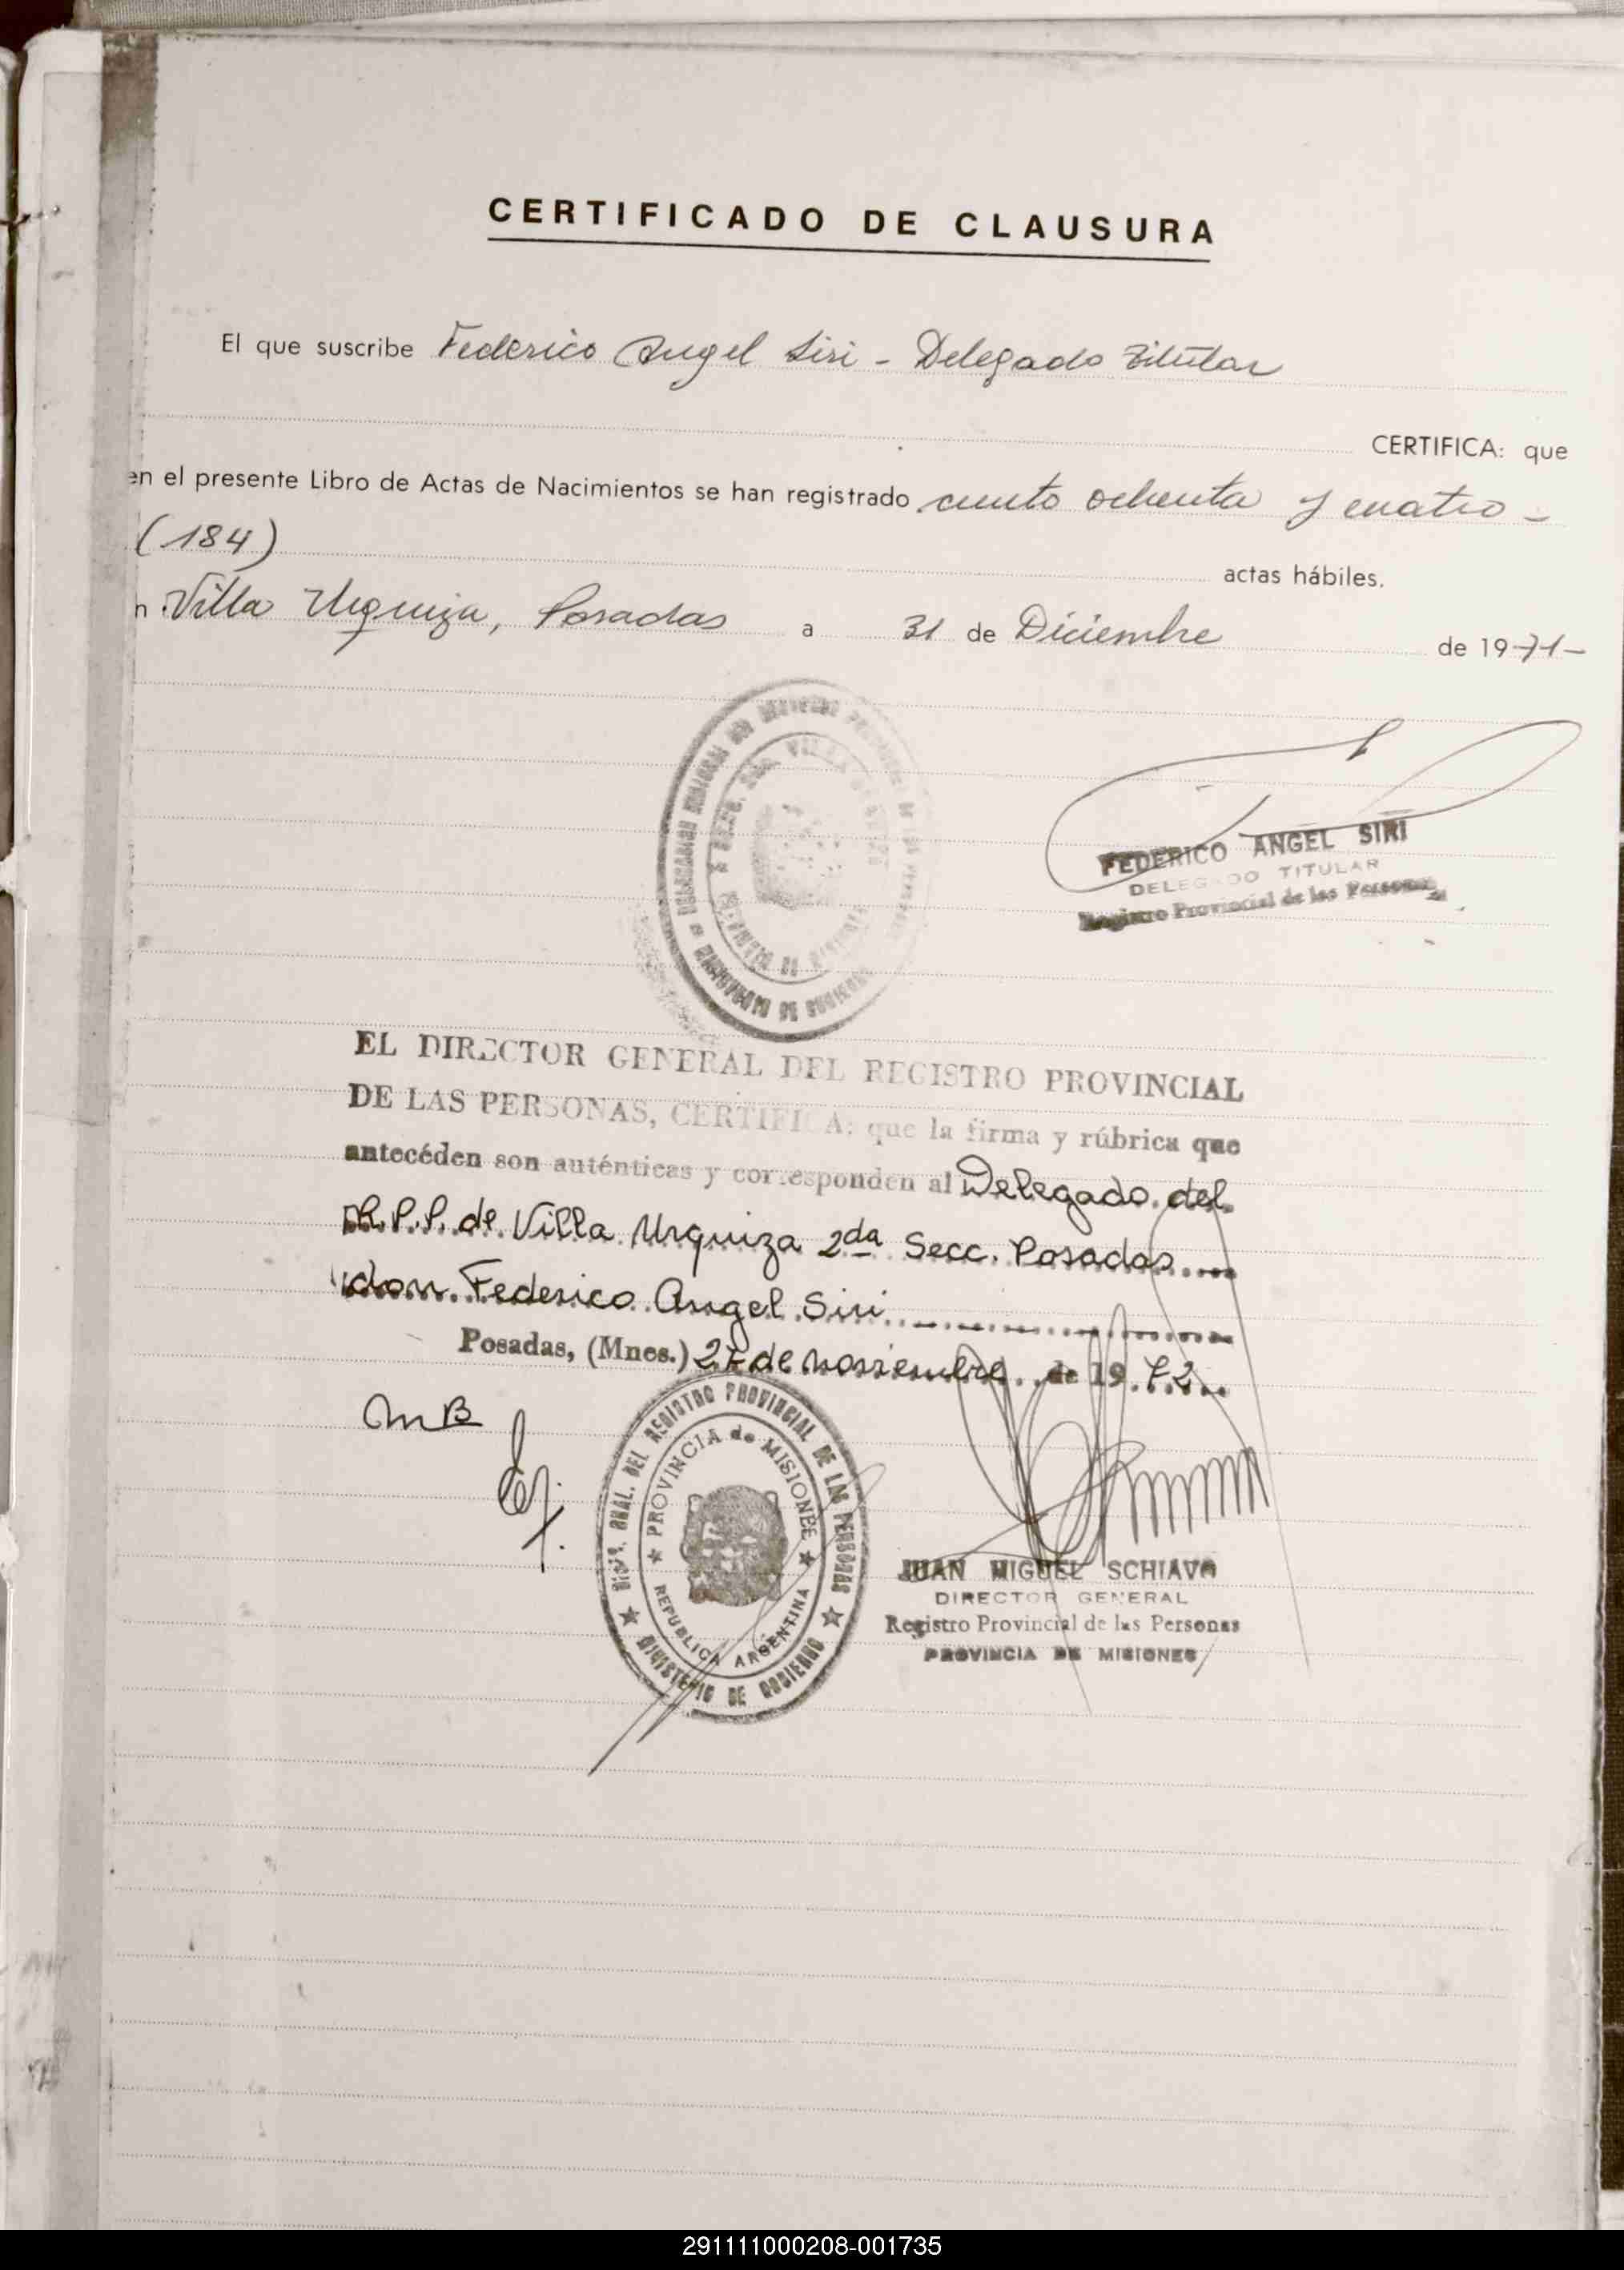 CERTIFICADO DE CLAUSURA
El que suscribe Federico Angel Siri - Delegado Titular
CERTIFICA: que
en el presente Libro de Actas de Nacimientos se han registrado ciento ochenta y cuatro -
(184)
actas hábiles.
n Villa Urquiza, Posadas a 31 de Diciembre de 1971-
FEDERICO ANGEL SIRI
DELEGADO TITULAR
Registro Provincial de las Personas
EL DIRECTOR GENERAL DEL REGISTRO PROVINCIAL
DE LAS PERSONAS, CERTIFICA: que la firma y rúbrica que
antecéden son auténticas y corresponden al Delegado del
R.P.P. de Villa Urquiza 2da Secc. Posadas
don Federico Angel Siri
Posadas, (Mnes.) 27 de noviembre de 1972
MB
DIRE. GRAL. DEL REGISTRO PROVINCIAL DE LAS PERSONAS
PROVINCIA de MISIONES
REPUBLICA ARGENTINA
MINISTERIO DE GOBIERNO
JUAN MIGUEL SCHIAVO
DIRECTOR GENERAL
Registro Provincial de las Personas
PROVINCIA DE MISIONES
291111000208-001735